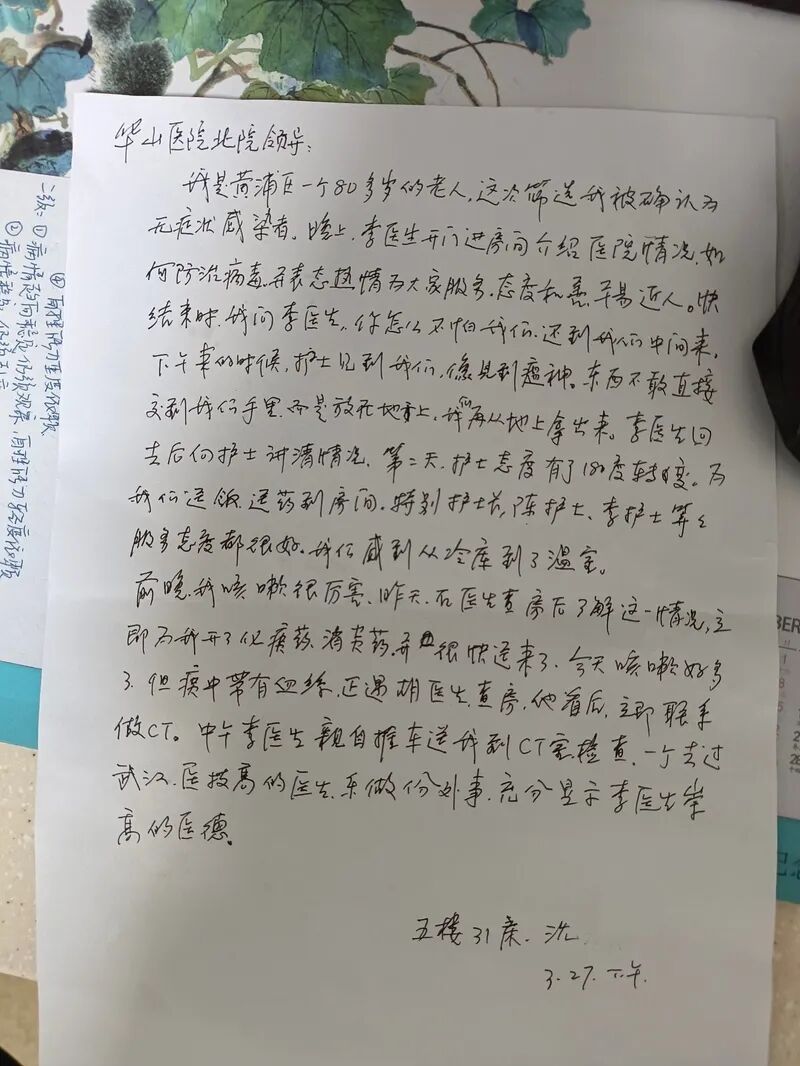 华山医院北院领导:
我是黄浦区一个80多岁的老人,这次筛选我被确认为
无症状感染者。晚上,李医生开门进房间介绍医院情况,如
何防治病毒,并表态热情为大家服务,态度和善,平易近人。快
结束时,我问李医生,你怎么不怕我们,还到我们中间来,
下午来的时候,护士见到我们,像见到瘟神。东西不敢直接
交到我们手里,而是放在地上,我们再从地上拿出来。李医生回
去后向护士讲清情况,第二天,护士态度有了180度转变。为
我们送饭,送药到房间。特别护士长,陈护士、李护士等之
服务态度都很好。我们感到从冷库到了温室。
前晚,我咳嗽很厉害,昨天,石医生查房后了解这一情况,立
即为我开了化痰药,消炎药,并很快送来了,今天咳嗽好多
了,但痰中带有血丝,正遇胡医生查房,他看后,立即联系
做CT。中午李医生亲自推车送我到CT室检查,一个去过
武汉,医技高的医生,来做份外事,充分显示李医生崇
高的医德。
五楼31床,沈
3.27.下午.
二级:① 病情趋向稳定仍须观察,自理能力轻度依赖